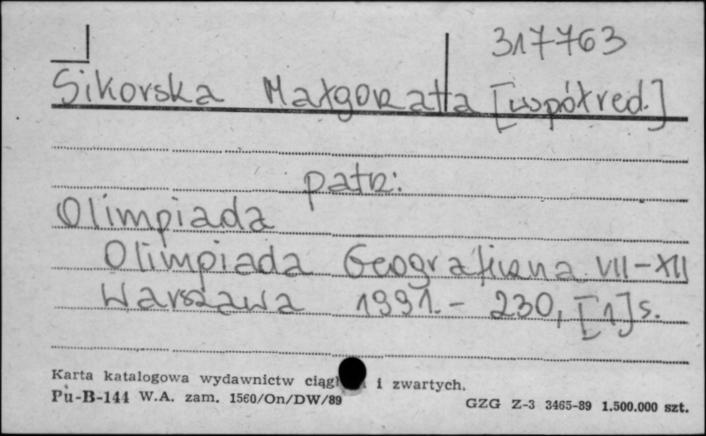 317763
Sikorska Małgorzata [współred.]
patrz:
Olimpiada
Olimpiada Geograficzna VII-XII
Warszawa 1991.- 230, [1] s.
Karta katalogowa wydawnictw i zwartych.
Pu-B-144 W.A. zam. 1560/On/DW/89
GZG Z-3 3465-89 1.500.000 szt.